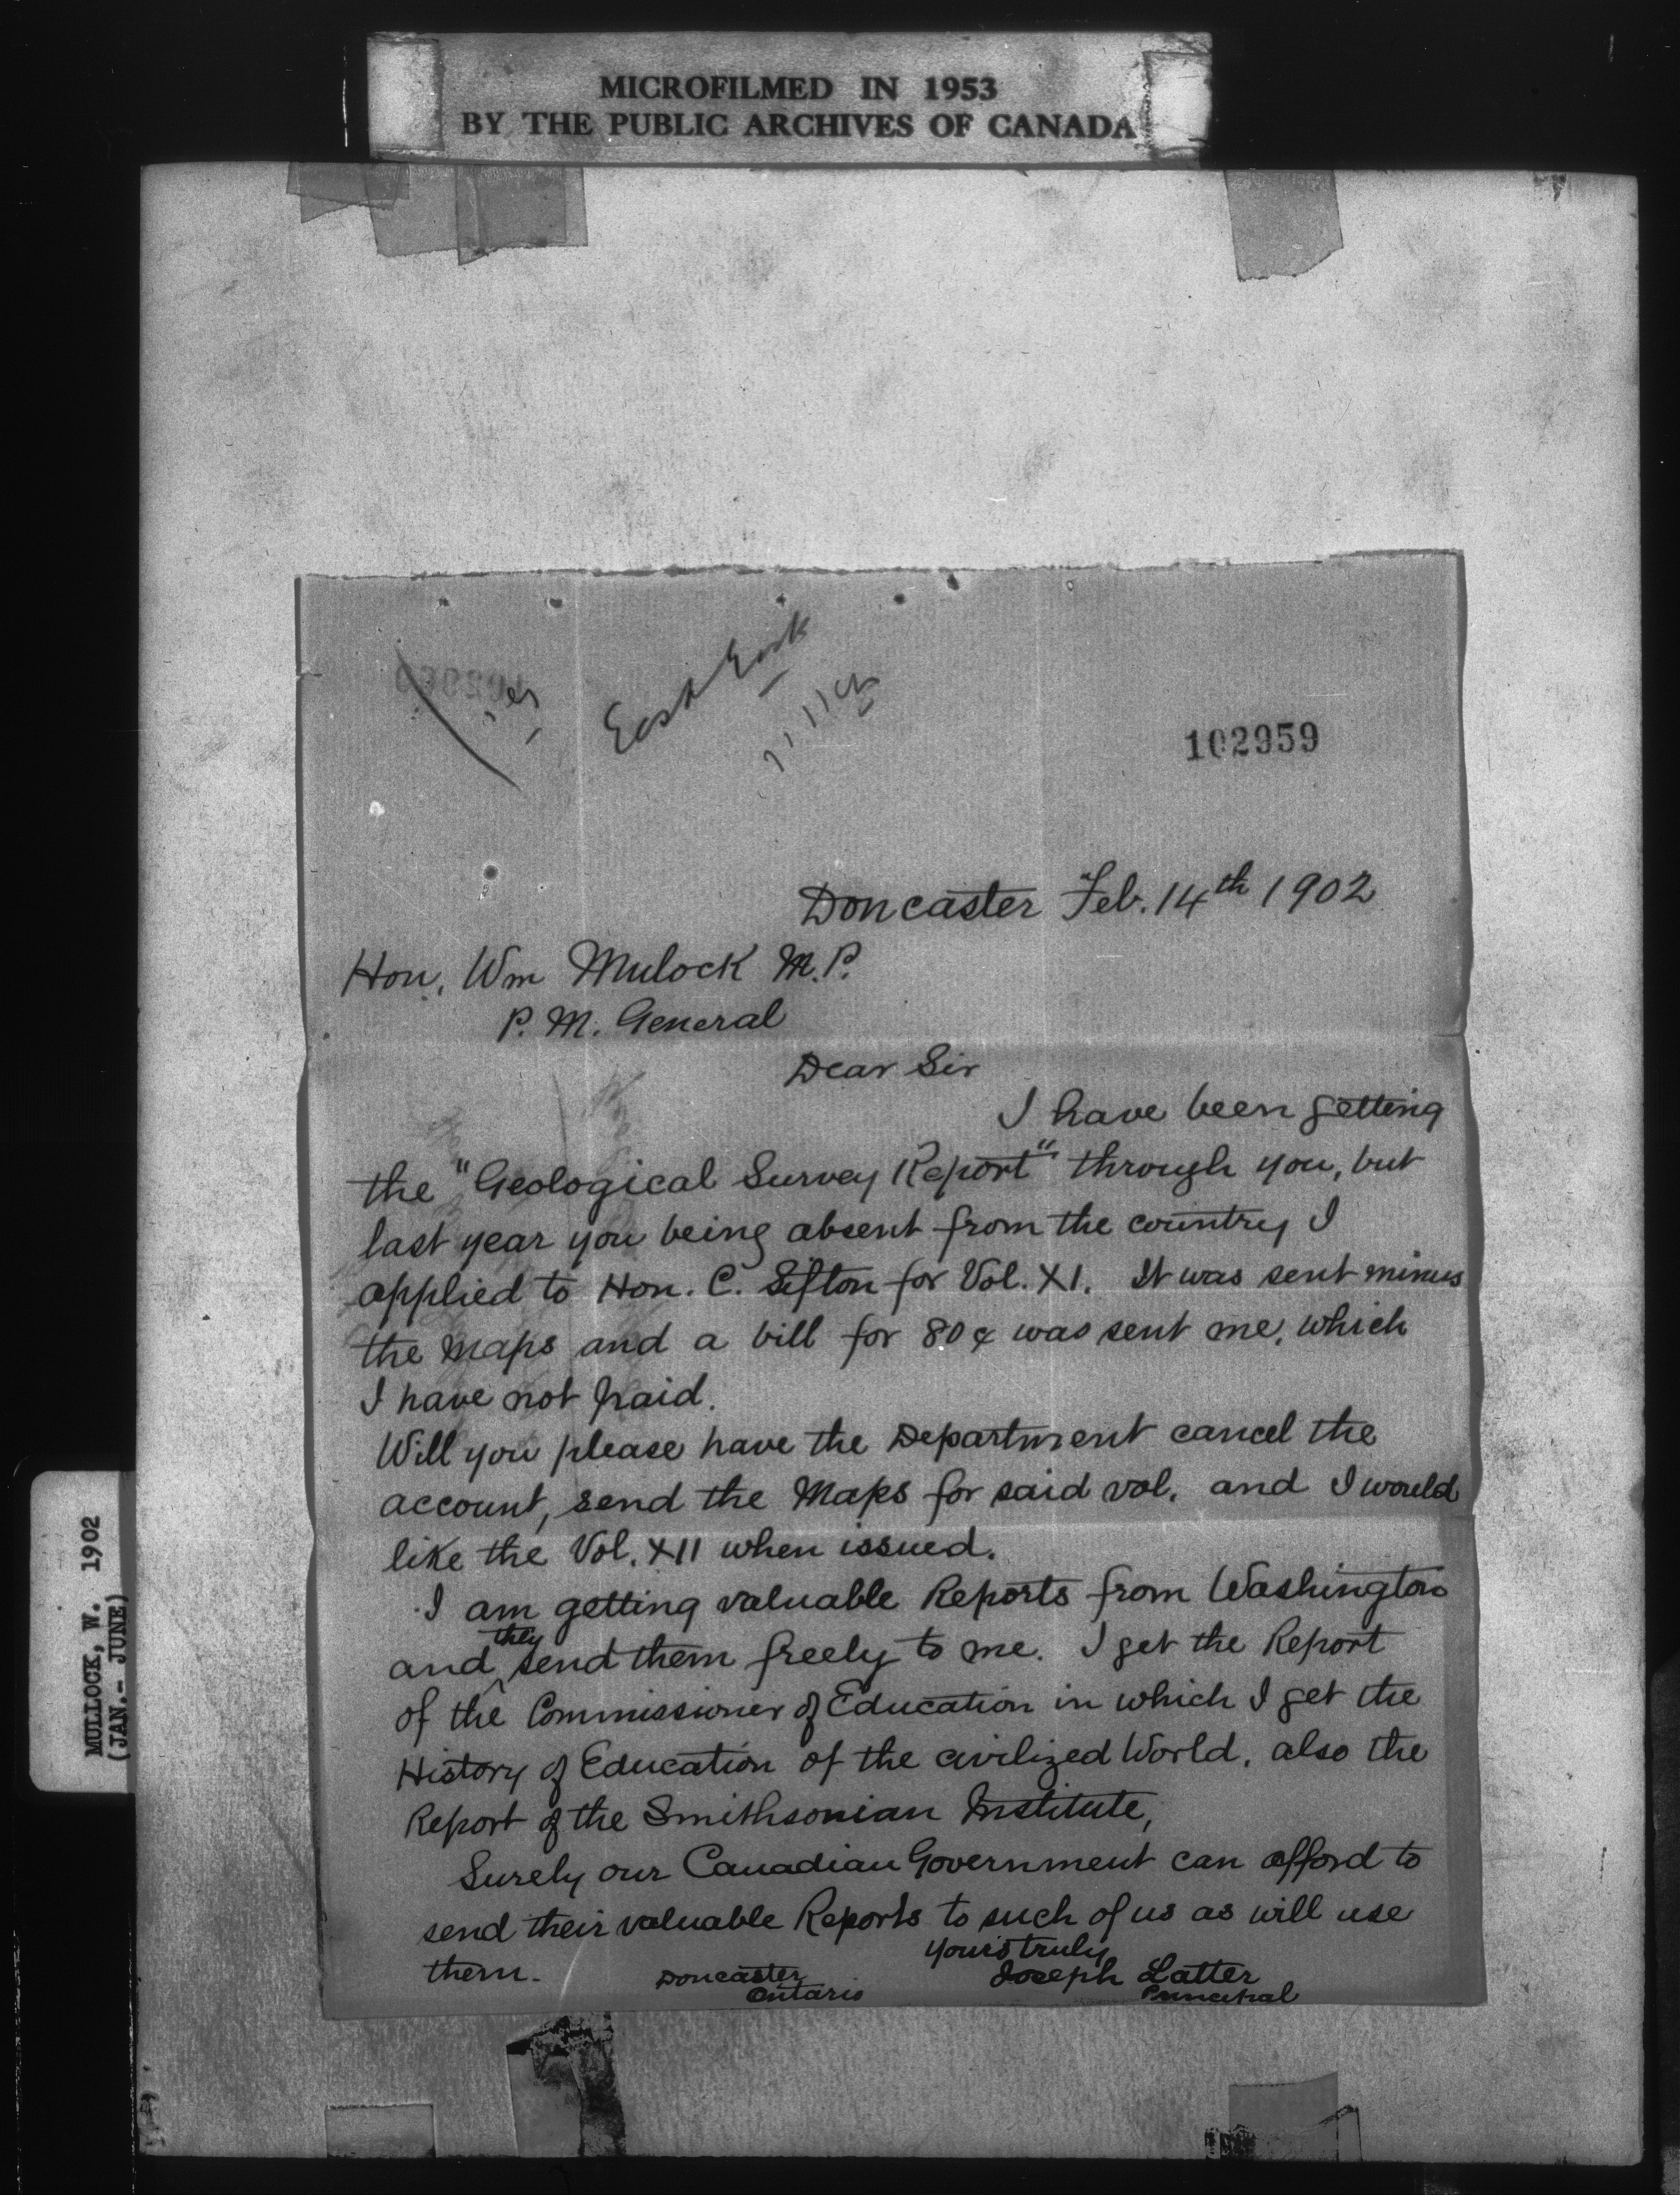 MICROFILMED IN 1953
BY THE PUBLIC ARCHIVES OF CANADA
East York
102959
Doncaster Feb. 14th 1902
Hon. Wm Mulock M.P.
P. M. General
Dear Sir
I have been getting
the "Geological Survey Report" through you, but
last year you being absent from the country I
applied to Hon. C. Sifton for Vol. XI. It was sent minus
the Maps and a bill for 80¢ was sent me, which
I have not paid.
Will you please have the Department cancel the
account, send the Maps for said vol. and I would
like the Vol. XII when issued.
I am getting valuable Reports from Washington
and they send them freely to me. I get the Report
of the Commissioner of Education in which I get the
History of Education of the civilized World. also the
Report of the Smithsonian Institute,
Surely our Canadian Government can afford to
send their valuable Reports to such of us as will use
them.
Yours truly
Joseph Latter
Principal
Doncaster
Ontario
MULLOCK, W. 1902
(JAN.- JUNE)